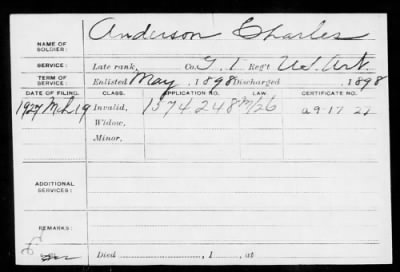 NAME OF SOLDIER: Anderson Charles
SERVICE: Late rank, Co. G. 1 Reg't U.S. Art.
TERM OF SERVICE: Enlisted May, 1898 Discharged , 1898
DATE OF FILING. CLASS. APPLICATION NO. LAW. CERTIFICATE NO.
1927 Mch 19 Invalid, 1574248 m/26 a 9-17 27
Widow,
Minor,
ADDITIONAL SERVICES:
REMARKS:
Died , 1 , at